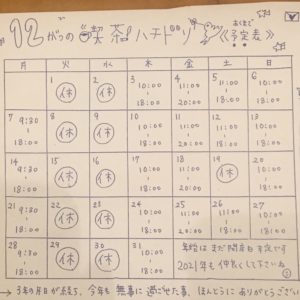 12がつの喫茶ハチドリ
あくまで
《予定表》
月 火 水 木 金 土 日
1 2 3 4 5 6
休 休 10:00 11:00 11:00 10:00
18:00 18:00
7 8 9 10 11 12 13
9:30 休 休 10:00 11:00 11:00 10:00
18:00 18:00 18:00
14 15 16 17 18 19 20
9:30 休 休 10:00 11:00 休 10:00
18:00 18:00 18:00
21 22 23 24 25 26 27
9:30 休 休 10:00 11:00 11:00 10:00
18:00 18:00 20:00 20:00 18:00
28 29 30 31
9:30 休 休 10:00
18:00 18:00
年始はまだ開店日未定です
2021年も仲良くして下さいね
今年も無事に過ごせた事、ほんとうにありがとうござい